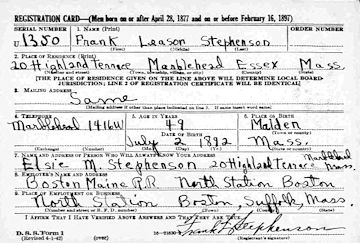 REGISTRATION CARD—(Men born on or after April 28, 1877 and on or before February 16, 1897)
SERIAL NUMBER 1. NAME (Print) ORDER NUMBER
U 1350 Frank Leason Stephenson
(First) (Middle) (Last)
2. PLACE OF RESIDENCE (Print)
20 Highland Terrace Marblehead Essex Mass.
(Number and street) (Town, township, village, or city) (County) (State)
[THE PLACE OF RESIDENCE GIVEN ON THE LINE ABOVE WILL DETERMINE LOCAL BOARD JURISDICTION; LINE 2 OF REGISTRATION CERTIFICATE WILL BE IDENTICAL]
3. MAILING ADDRESS
Same
(Mailing address if other than place indicated on line 2. If same insert word same)
4. TELEPHONE 5. AGE IN YEARS 6. PLACE OF BIRTH
Marblehead 1416W 49 Malden
DATE OF BIRTH (Town or county)
July 2 1892 Mass.
(Mo.) (Day) (Yr.) (State or country)
7. NAME AND ADDRESS OF PERSON WHO WILL ALWAYS KNOW YOUR ADDRESS Marblehead
Elsie M. Stephenson 20 Highland Terrace Mass.
8. EMPLOYER'S NAME AND ADDRESS
Boston Maine R.R. North Station Boston
9. PLACE OF EMPLOYMENT OR BUSINESS
North Station Boston, Suffolk, Mass.
(Number and street or R. F. D. number) (Town) (County) (State)
I AFFIRM THAT I HAVE VERIFIED ABOVE ANSWERS AND THAT THEY ARE TRUE.
D. S. S. Form 1
(Revised 4-1-42) (over)
Frank L Stephenson
(Registrant's signature)